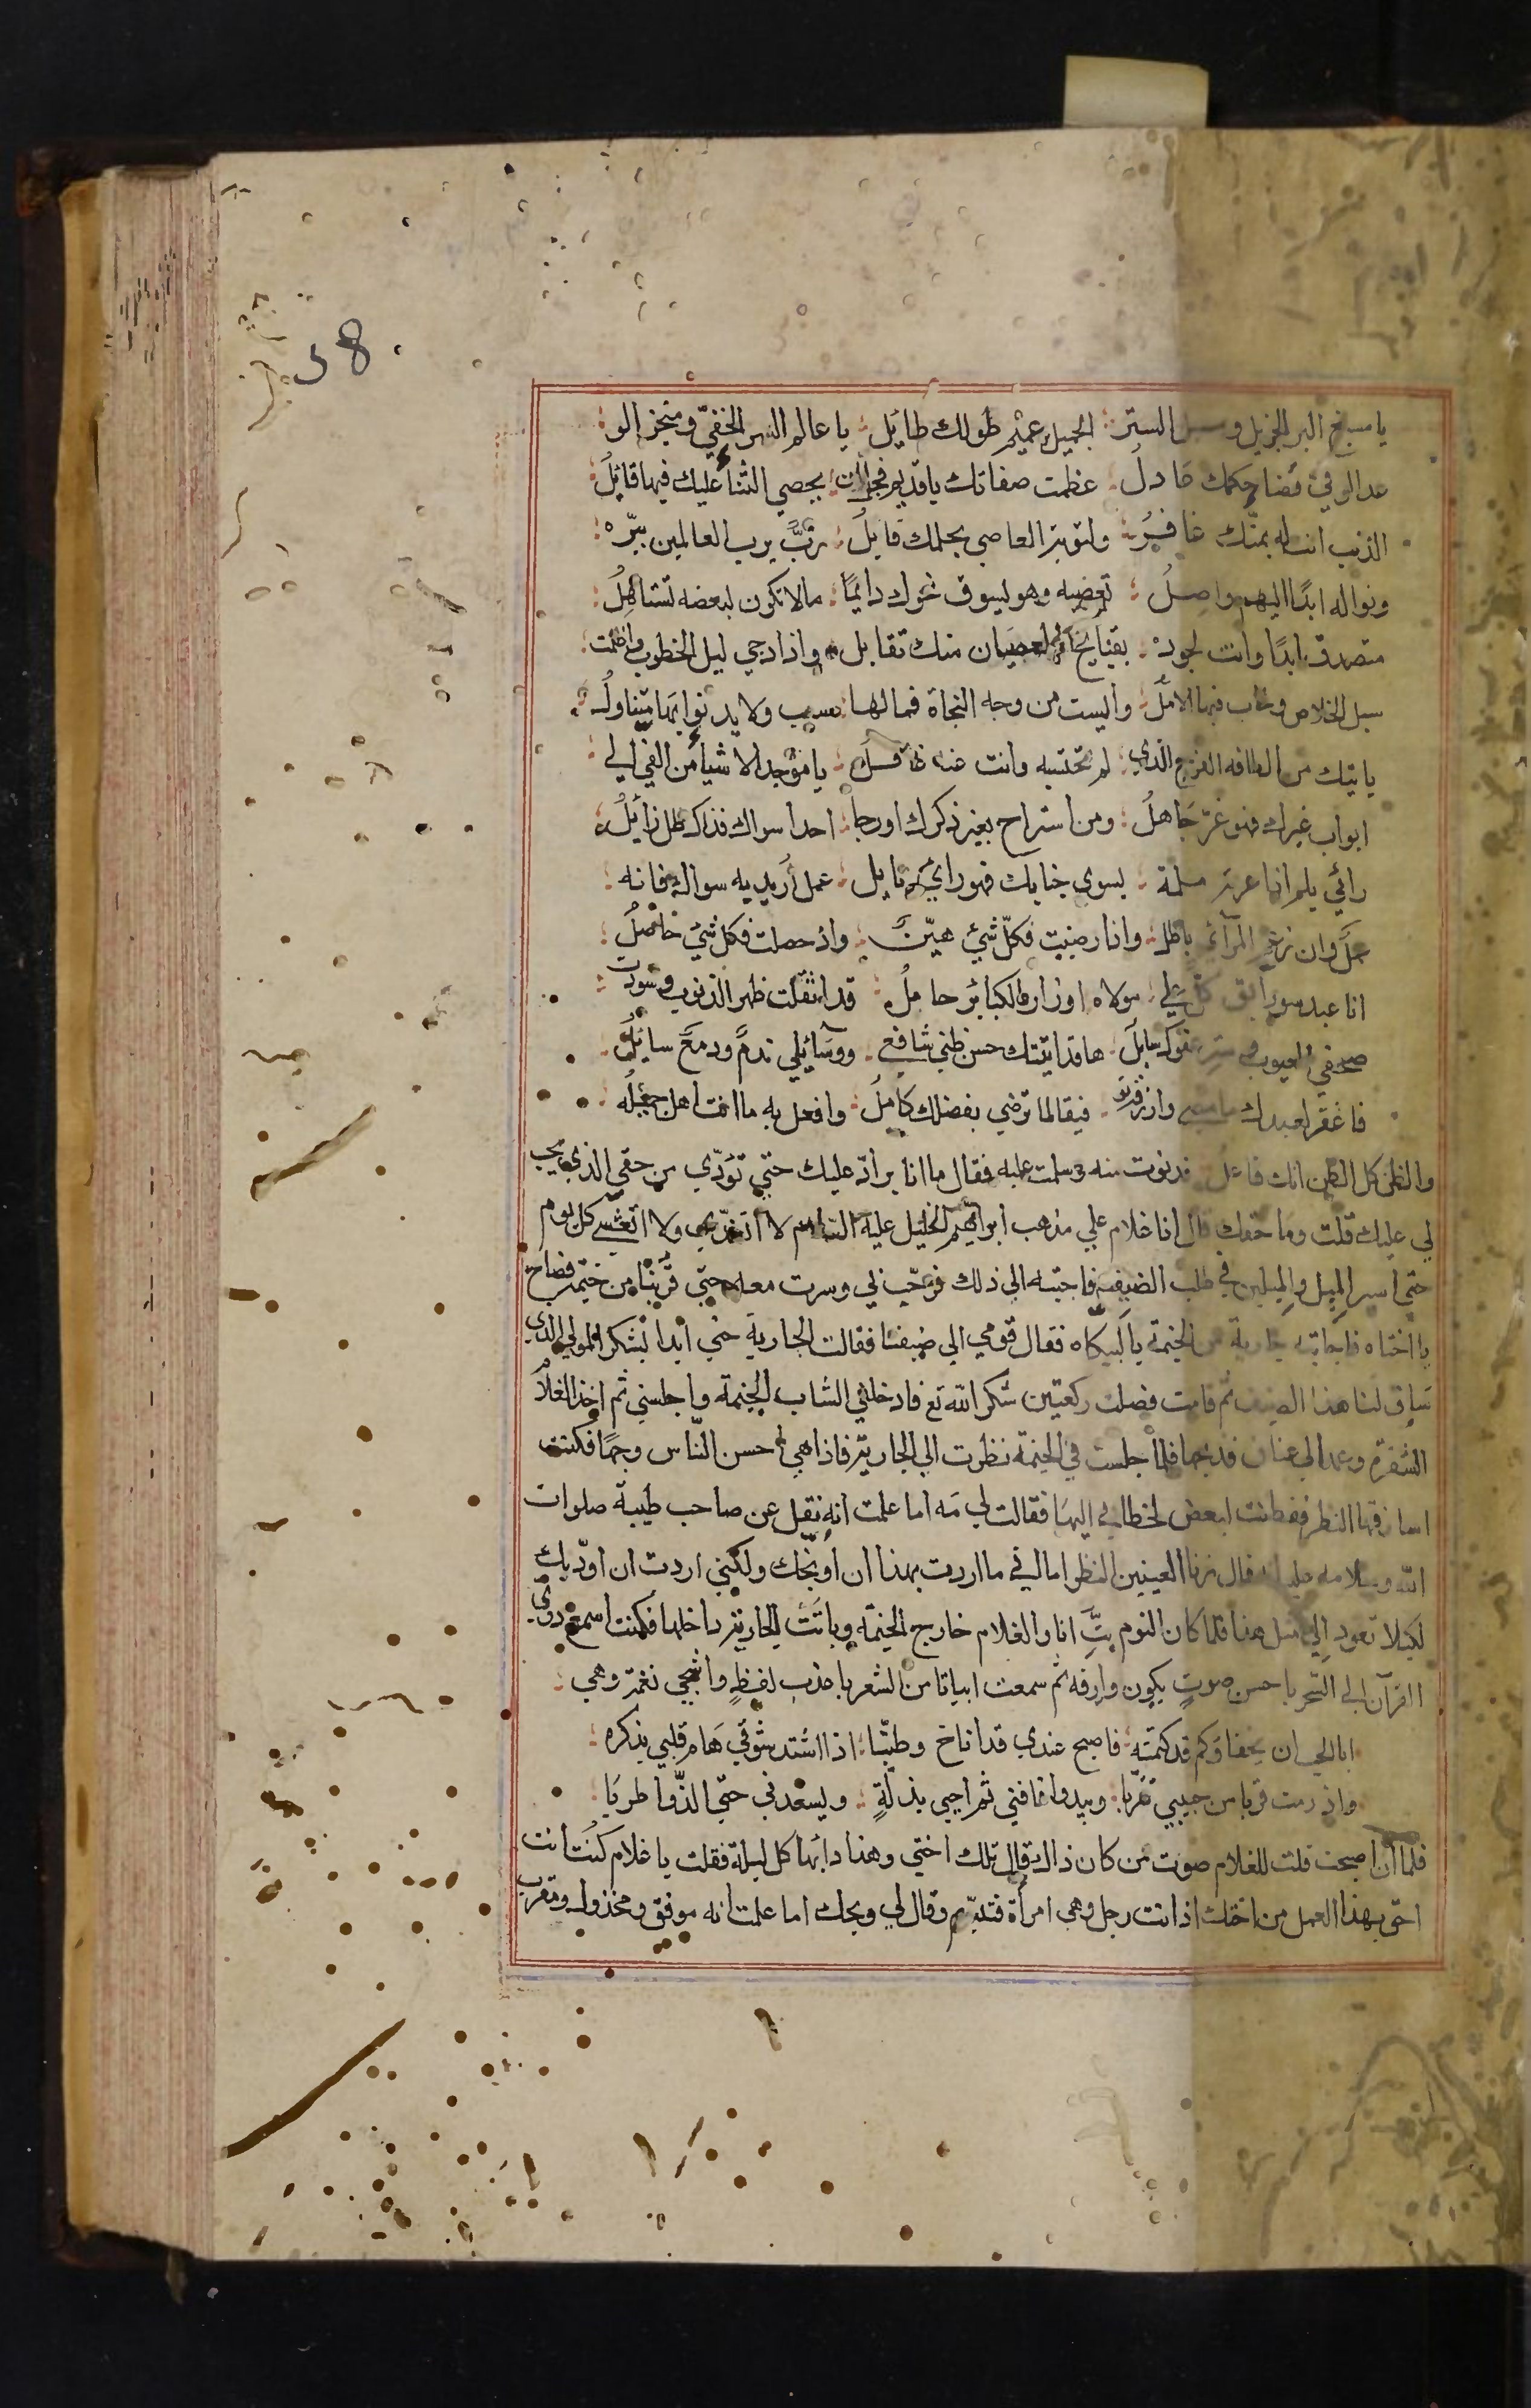 58
يا مسبغ البر الجزيل ومسبل الستر؛ الجميل عميم طولك طايل؛ يا عالم السر الخفيّ ومنجز الو؛
عد الوفي قضا حكمك عادل؛ عظمت صفاتك يا قديم فجل ان؛ يحصي الثناء عليك فيها قائل؛
الذنب انت له بمنّك غافر؛ ولتوبة العاصي بحلمك قابل؛ ربّ يرب العالمين ببرّه؛
ونواله ابدًا اليهم واصل؛ تعصيه وهو يسوق نحوك دايمًا؛ مالا تكون لبعضه تستاهل؛
متصدق ابدًا وانت لجوده؛ بقبايح العصيان منك تقابل؛ واذا دجي ليل الخطوب واظلمت؛
سبل الخلاص وخاب فيها الامل؛ وايست من وجه النجاة فما لها؛ سبب ولا يدنوا بها متناول؛
ياتيك من الطافه الفرج الذي؛ لم تحتسبه وانت عنه غافل؛ يا موجد الاشياء من القي الي؛
ابواب غيرك فهو غرّ جاهل؛ ومن استراح بغير ذكرك او رجا؛ احدا سواك فذاك ظل زايل؛
رائي يلم اذا عرته ملمة؛ بسوي جنابك فهو راي مايل؛ عمل اريد به سواك فانه؛
عمل وان زعم المرائي باطل؛ واذا رضيت فكلّ شيئ هيّن؛ واذ حصلت فكل شيئ حاصل؛
انا عبد سوء ابق كلّ علي؛ مولاه اوزار الكبائر حامل؛ قد اثقلت ظهر الذنوب وسودت؛
صحفي العيوب وستر عفوك سابل؛ ها قد اتيتك حسن ظني شافعي؛ ووسائلي ندم ودمع سايل؛
فاغفر لعبدك ما مضي وارزقه تو؛ فيقا لما ترضي بفضلك كامل؛ وافعل به ما انت اهل جميله؛
والظن كل الظن انك فاعل فدنوت منه وسلمت عليه فقال ما انا برادّ عليك حتي تؤدّي من حقي الذي يجب
لي عليك قلت وما حقك قال انا غلام علي مذهب ابراهيم الخليل عليه السلام لا اتغدّي ولا اتعشي كل يوم
حتي اسير الميل والميلين في طلب الضيف فاجبته الي ذلك فرحّب لي وسرت معه حتي قربنا من خيمة فصاح
يا اختاه فاجابته جارية من الخيمة يا لبيكاه فقال قومي الي ضيفنا فقالت الجارية حتي ابدا بشكر المولي الذي
ساق لنا هذا الضيف ثم قامت فصلت ركعتين شكر الله تع فادخلني الشاب الخيمة واجلسني ثم اخذ الغلام
الشفرة وعمد الي عناق فذبحها فلما جلست في الخيمة نظرت الي الجارية فاذا هي احسن النّاس وجها فكنت
اسارقها النظر ففطنت لبعض لحظاتي اليها فقالت لي مه اما علمت انه نقل عن صاحب طيبة صلوات
الله وسلامه عليه انه قال زنا العينين النظر اما اني ما اردت بهذا ان اوبخّك ولكني اردت ان اؤدّبك
لكيلا تعود الي مثل هذا فلما كان النوم بتّ انا والغلام خارج الخيمة وباتت الجارية داخلها فكنت اسمع دوي
القرآن الي السّحر باحسن صوت يكون وارقه ثم سمعت ابياتا من الشعر باعذب لفظ واشجي نغمة وهي؛
ابا الحب ان يخفا وكم قد كتمته؛ فاصبح عندي قد اناخ وطنّبا؛ اذا اشتد شوقي هام قلبي بذكره؛
واذ رمت قربا من حبيبي تقرّبا؛ ويبدوا فافني ثم احيي بذلّة؛ ويسعدني حتّي الذّ واطربا؛
فلما ان اصبحت قلت للغلام صوت من كان ذاك قال تلك اختي وهذا دابها كل ليلة فقلت يا غلام كنت انت
احق بهذا العمل من اختك اذ انت رجل وهي امرأة فتبسّم وقال لي ويحك اما علمت انه موفق ومخذول ومقرب